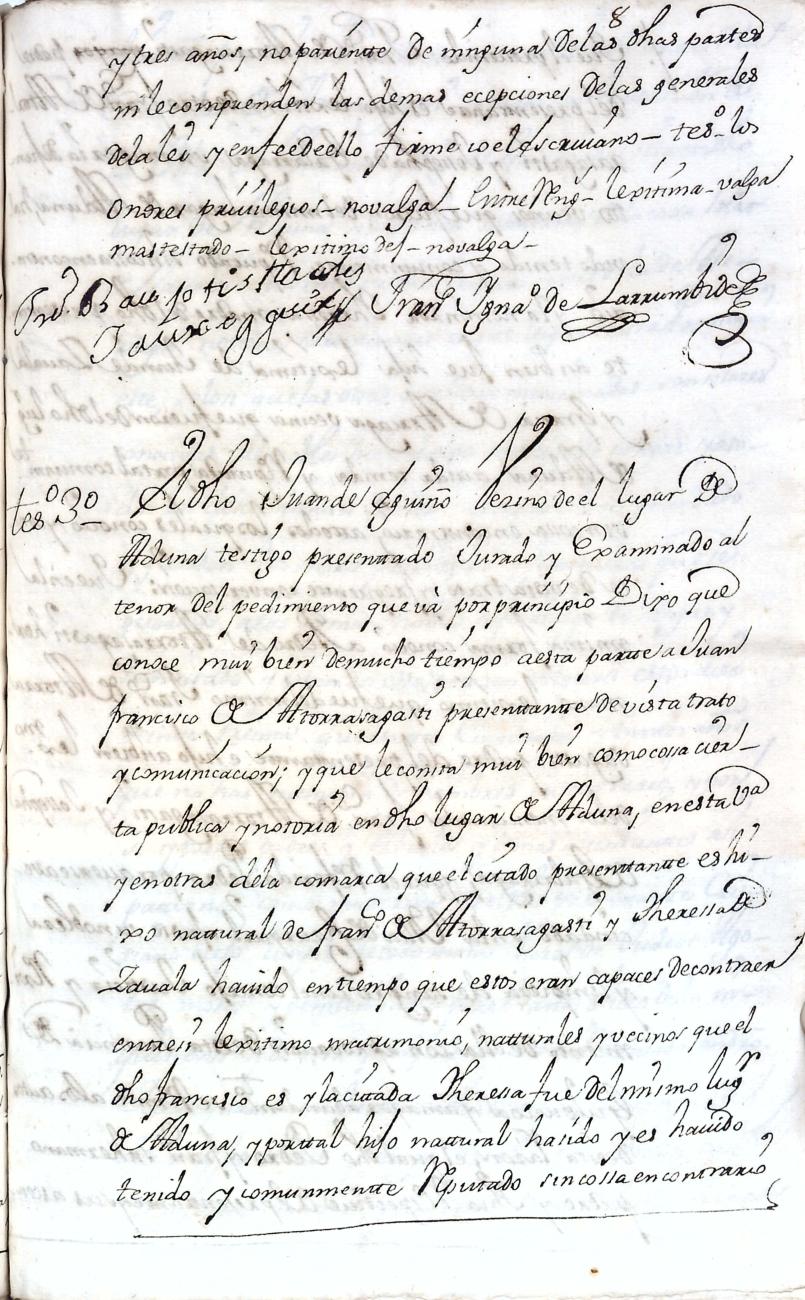 8
y tres años, no pariente de ninguna de las dhas partes
ni le comprenden las demas ecepciones de las generales
de la lei y en fee de ello firme io el escriuano – tesº – los
onores priuilegios – no valga – Entre Rengs – lexitima – valga
mas testado – lexitimo del – no valga –
Juº Baup tista de
Jaureggui Franco Ygnaº de Larrumbide
tesº 3º El dho Juan de Eguino Vezino de el lugar De
Aduna testigo presenttado Jurado y Examinado al
tenor del pedimiento que và por principio Dixo que
conoce mui bien de mucho tiempo a esta partte a Juan
francisco de Attorrasagasti presenttantte de vista trato
y comunicacion; y que le consta mui bien como cossa cier–
ta publica y notoria en dho lugar de Aduna, en esta Va
y en otras de la comarca que el citado presenttantte es hi–
xo nattural de Franco de Attorrasagasti y Theressa de
Zauala hauido en tiempo que estos eran capaces de contraer
entre si lexitimo matrimonio, natturales y vecinos que el
dho francisco es y la citada Theressa fue del mismo lugr
de Aduna, y por ttal hijo nattural ha sido y es hauido
tenido y comunmentte Reputado sin cossa en contrario